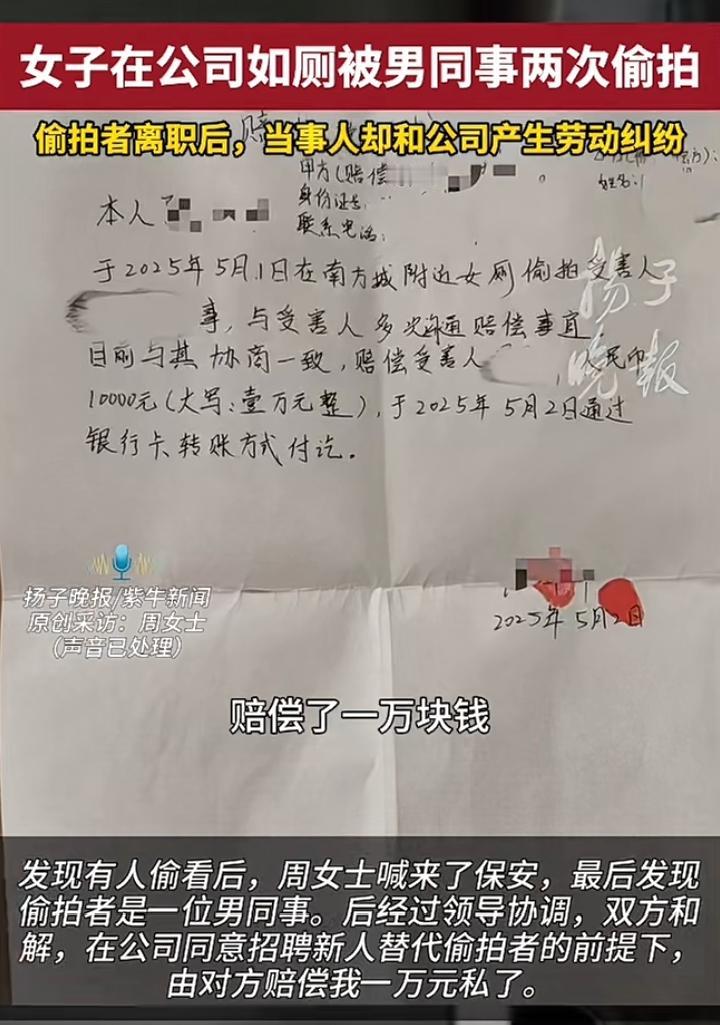 女子在公司如厕被男同事两次偷拍
偷拍者离职后，当事人却和公司产生劳动纠纷
赔
甲方(赔偿
身份证号:
联系电话:
姓名:
本人
于2025年5月1日在南方城附近女厕偷拍受害人
事，与受害人多次沟通赔偿事宜，
目前与其协商一致，赔偿受害人 人民币
10000元(大写:壹万元整)，于2025年5月2日通过
银行卡转账方式付讫。
扬子
晚报
2025年5月2日
扬子晚报/紫牛新闻
原创采访：周女士
（声音已处理）
赔偿了一万块钱
发现有人偷看后，周女士喊来了保安，最后发现
偷拍者是一位男同事。后经过领导协调，双方和
解，在公司同意招聘新人替代偷拍者的前提下，
由对方赔偿我一万元私了。